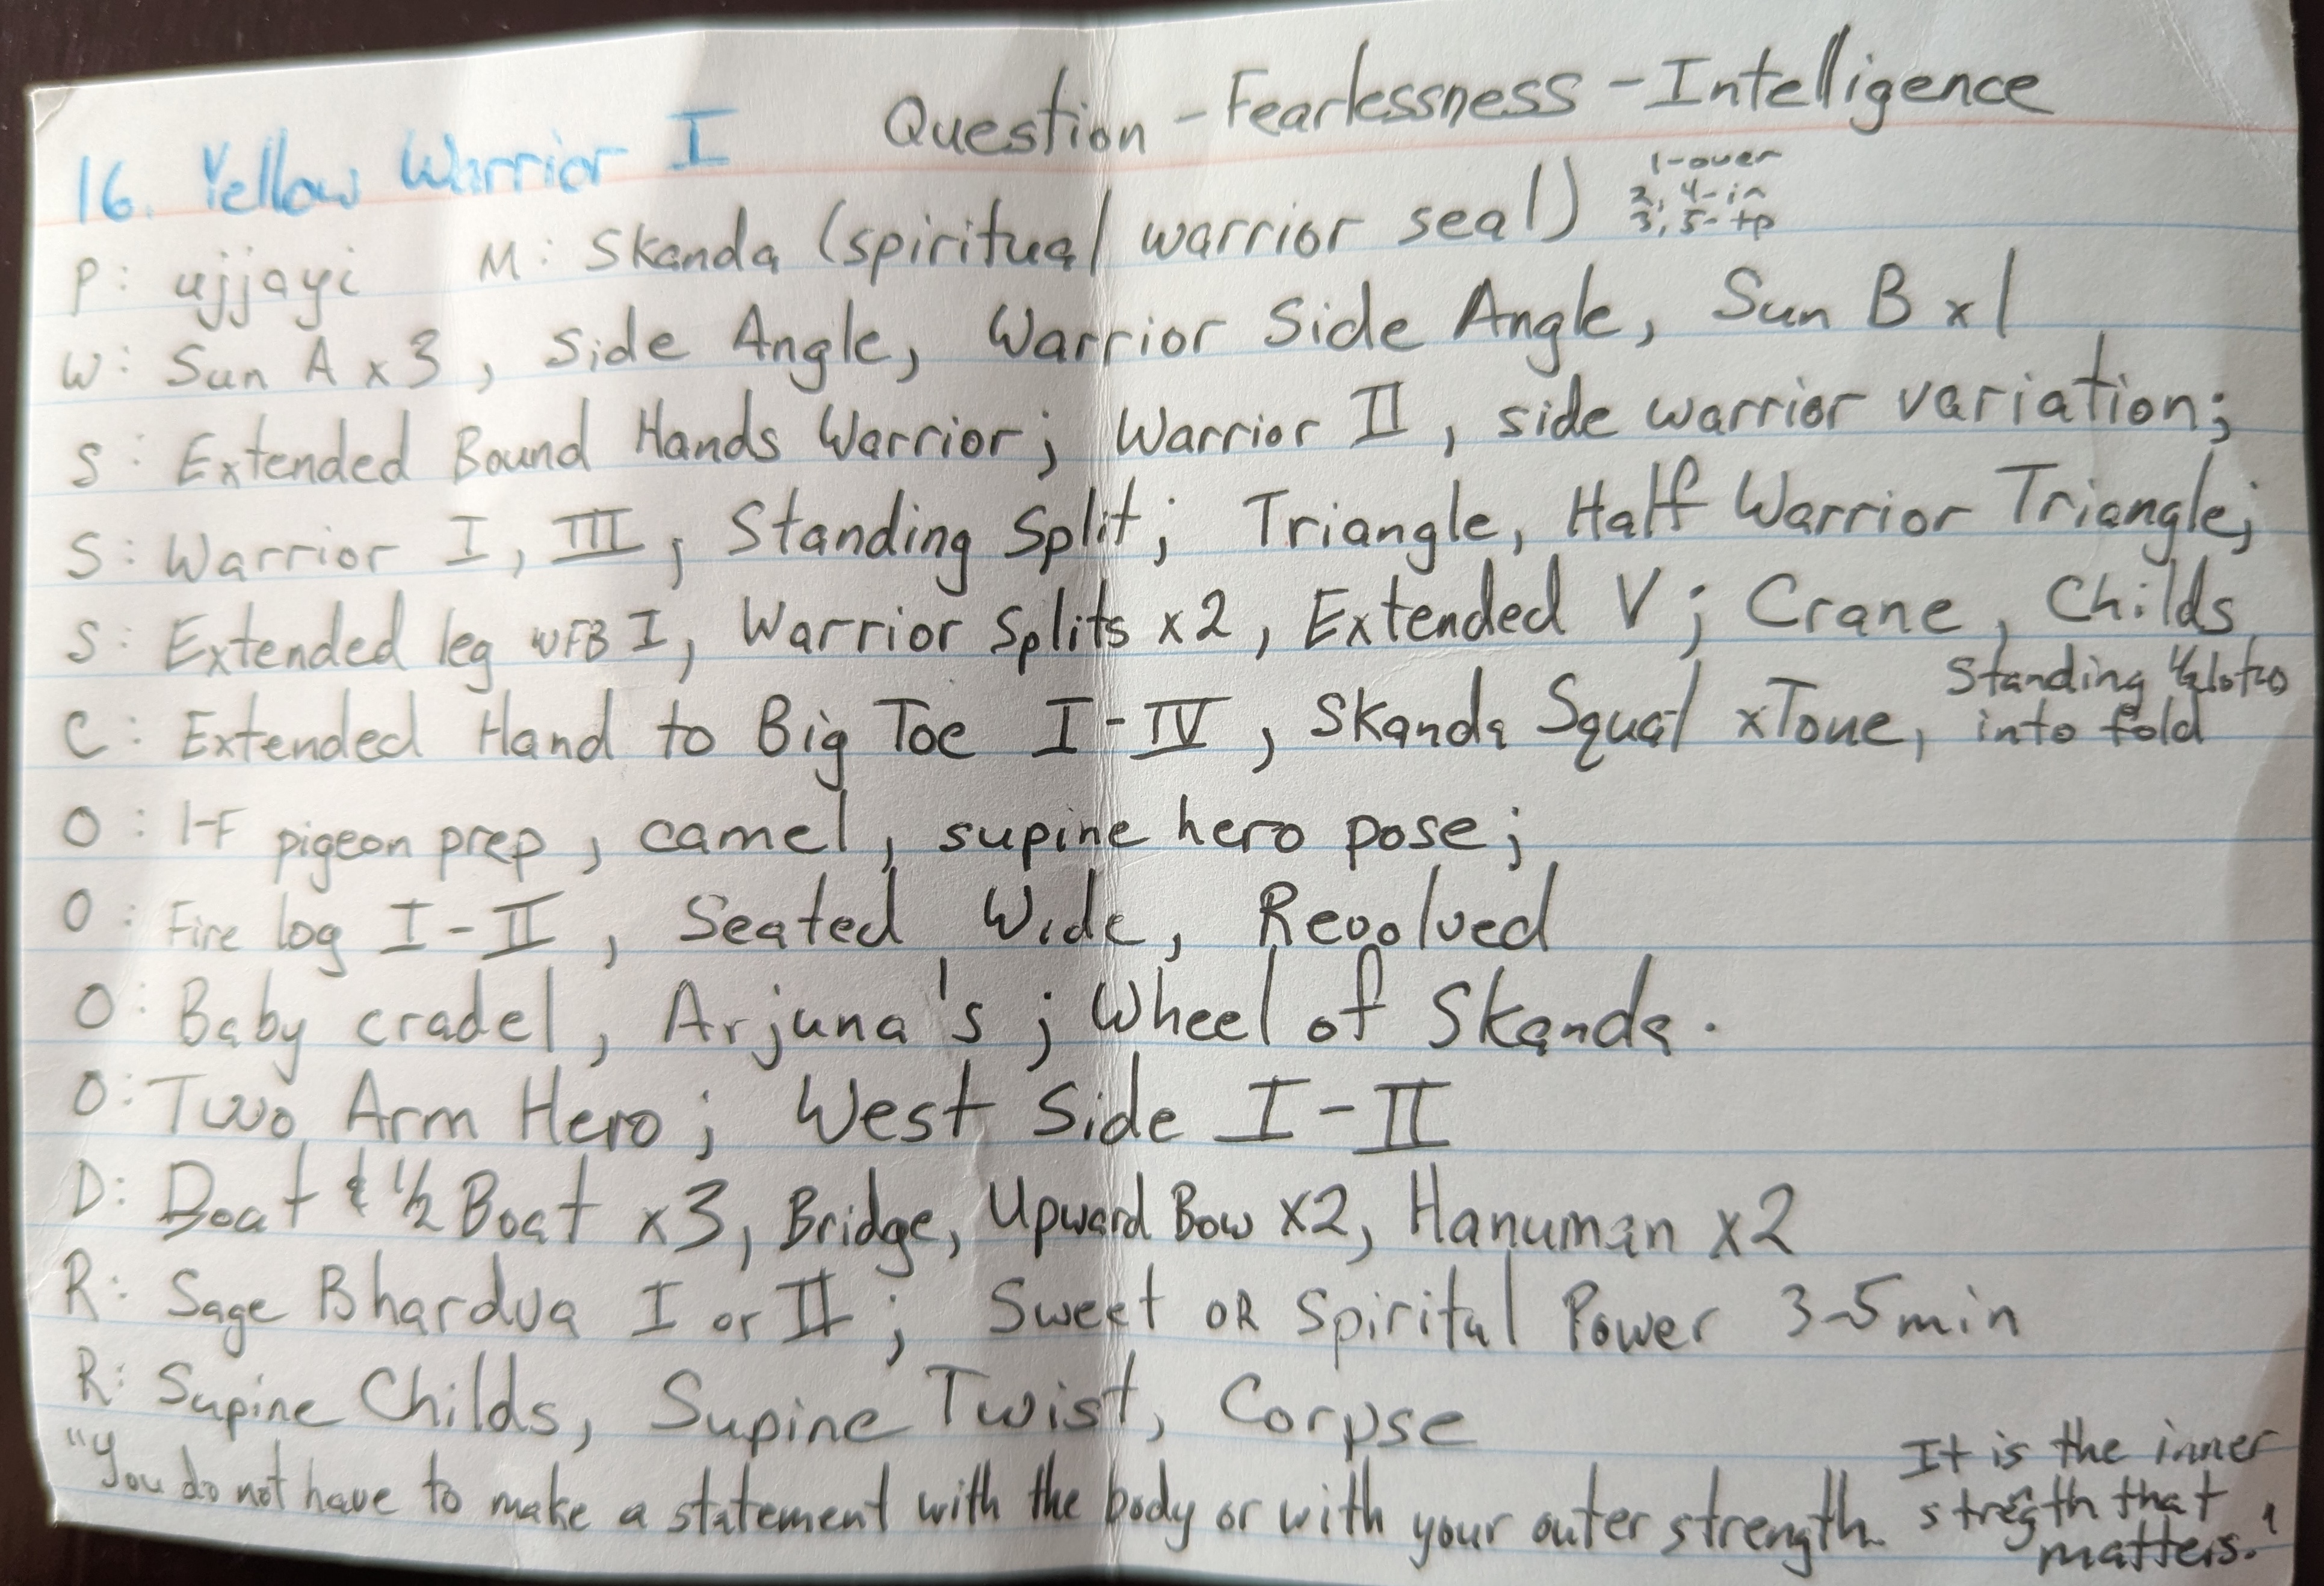 16. Yellow Warrior I Question - Fearlessness - Intelligence
P: ujjayi M: Skanda (spiritual warrior seal) 1-over
2, 4-in
3, 5-tp
W: Sun A x 3, Side Angle, Warrior Side Angle, Sun B x 1
S: Extended Bound Hands Warrior; Warrior II, side warrior variation;
S: Warrior I, III; Standing Split; Triangle, Half Warrior Triangle;
S: Extended leg WFB I, Warrior Splits x2, Extended V; Crane, Childs
C: Extended Hand to Big Toe I-IV, Skanda Squat xTone, Standing ½ lotus
into fold
O: 1-F pigeon prep, camel, supine hero pose;
O: Fire log I-II, Seated Wide, Revolved
O: Baby cradel, Arjuna's; Wheel of Skanda.
O: Two Arm Hero; West Side I-II
D: Boat & ½ Boat x3, Bridge, Upward Bow x2, Hanuman x2
R: Sage Bhardva I or II; Sweet OR Spirital Power 3-5min
R: Supine Childs, Supine Twist, Corpse
"You do not have to make a statement with the body or with your outer strength. It is the inner
strength that
matters."